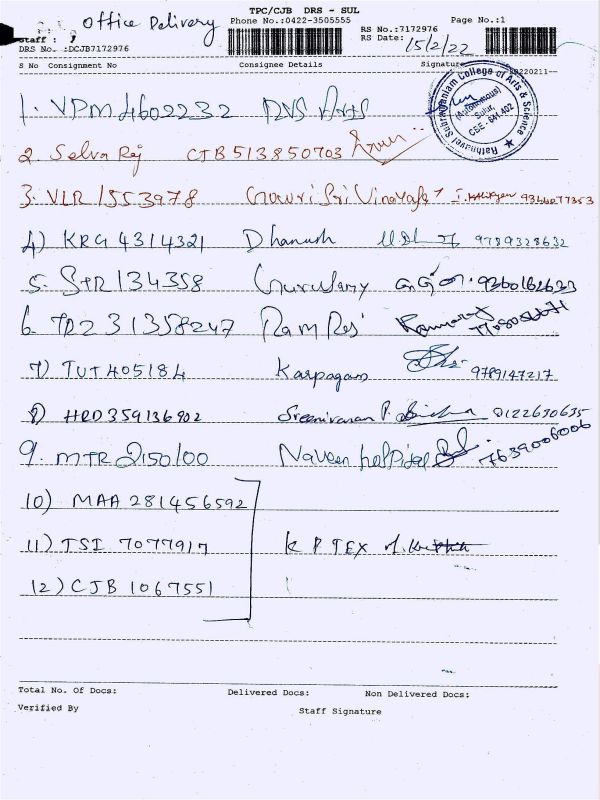 TPC/CJB DRS - SUL
Office Delivery Phone No.:0422-3505555 Page No.:1
Staff : RS No.:7172976
DRS No. :DCJB7172976 RS Date: 15/2/22
S No Consignment No Consignee Details Signature 0220211-
Rathnavel Subramaniam College of Arts & Science (Autonomous) Sulur, CBE - 641 402
1. VPM 4602232 RVS Arts
2. Selva Raj CJB513850703
3. VLR 1553978 Gowri Sri Vinayaga 9344077353
4) KRG 4314321 Dhanush 9789328632
5. STR 134358 Gurusamy 9360162623
6. TRZ 31358247 Ram Raj
7) TUT 405184 Karpagam 9789147217
8) HRD359136902 Sreenivasan P. 0122630635
9. MTR 2150100 Naveen hospital 7639006006
10) MAA 281456592
11) TSI 7077917 K P TEX
12) CJB 1067551
Total No. Of Docs: Delivered Docs: Non Delivered Docs:
Verified By Staff Signature